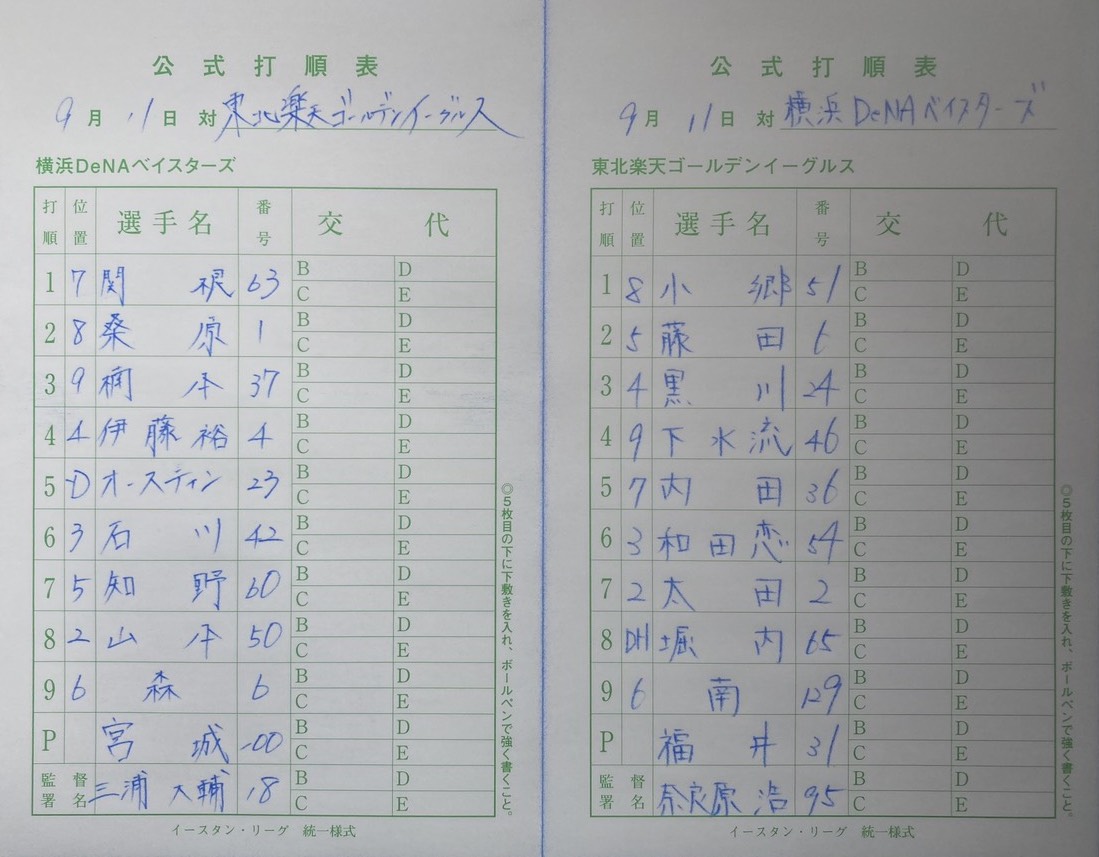 公式打順表
9月11日 対 東北楽天ゴールデンイーグルス
横浜DeNAベイスターズ
打順 位置 選手名 番号 交代
1 7 関根 63 B D
C E
2 8 桑原 1 B D
C E
3 9 楠本 37 B D
C E
4 4 伊藤裕 4 B D
C E
5 D オースティン 23 B D
C E
6 3 石川 42 B D
C E
7 5 知野 60 B D
C E
8 2 山本 50 B D
C E
9 6 森 6 B D
C E
P 宮城 100 B D
C E
監督署名 三浦大輔 18 B D
C E
イースタン・リーグ 統一様式
◎5枚目の下に下敷きを入れ、ボールペンで強く書くこと。
公式打順表
9月11日 対 横浜DeNAベイスターズ
東北楽天ゴールデンイーグルス
打順 位置 選手名 番号 交代
1 8 小郷 51 B D
C E
2 5 藤田 6 B D
C E
3 4 黒川 24 B D
C E
4 9 下水流 46 B D
C E
5 7 内田 36 B D
C E
6 3 和田恋 54 B D
C E
7 2 太田 2 B D
C E
8 DH 堀内 65 B D
C E
9 6 南 129 B D
C E
P 福井 31 B D
C E
監督署名 奈良原浩 95 B D
C E
イースタン・リーグ 統一様式
◎5枚目の下に下敷きを入れ、ボールペンで強く書くこと。